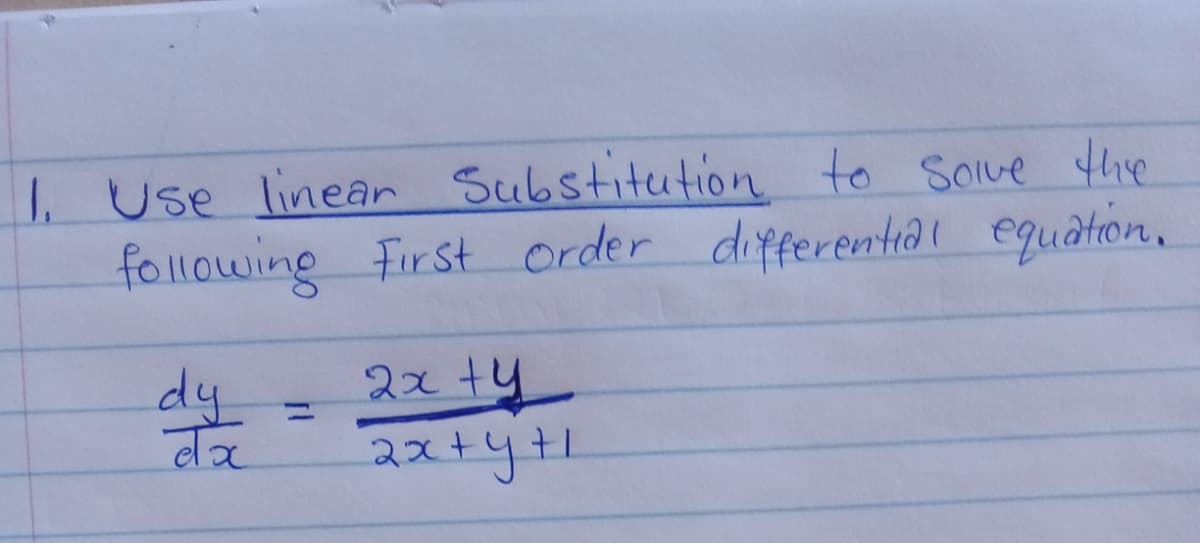 1. Use linear Substitution to solve the
following First order differential equation.
dy/dx = (2x + y)/(2x + y + 1)